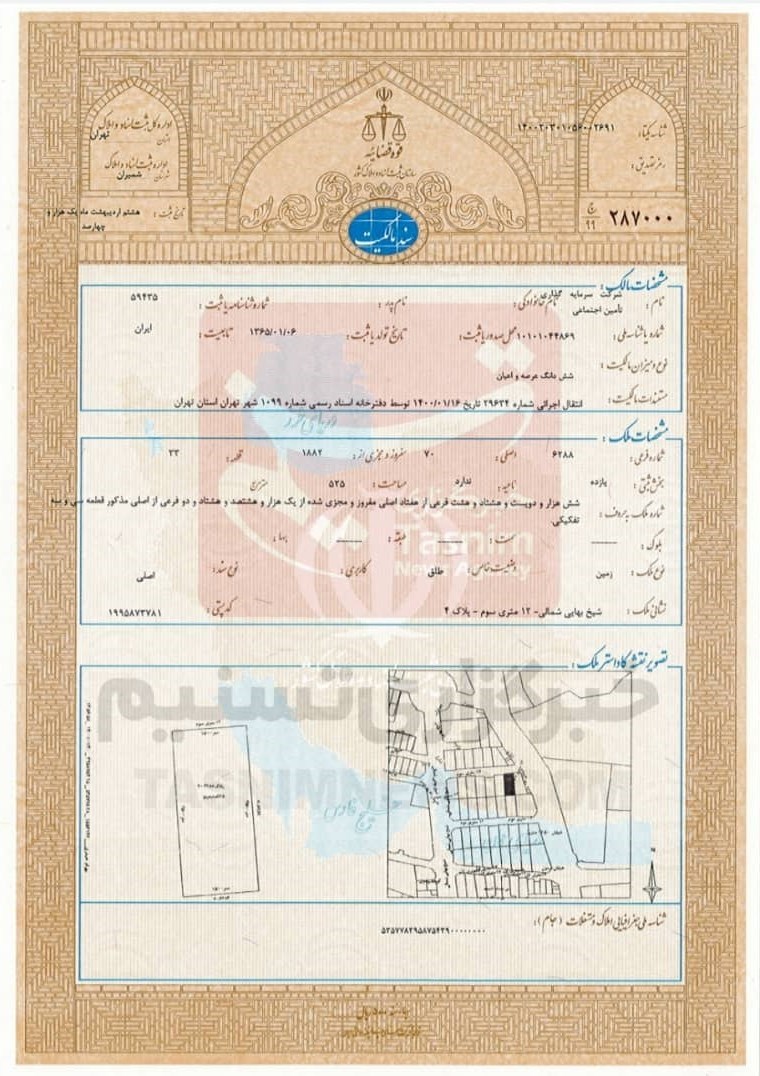 اداره کل ثبت اسناد و املاک
استان
تهران
اداره ثبت اسناد و املاک
شهرستان
شمیران
تاریخ ثبت :
هشتم اردیبهشت ماه یک هزار و
چهارصد
قوه قضائیه
سازمان ثبت اسناد و املاک کشور
سند مالکیت
شناسه یکتا :
۱۴۰۰۲۰۳۰۱۰۵۶۰۰۲۶۹۱
رمز تصدیق :
۲۸۷۰۰۰ ج ۹۹
مشخصات مالک :
نام : شرکت سرمایه گذاری تأمین اجتماعی نام خانوادگی : نام پدر : شماره شناسنامه یا ثبت : ۵۹۴۳۵
شماره یا شناسه ملی : ۱۰۱۰۱۰۴۴۸۶۹ محل صدور یا ثبت : تاریخ تولد یا ثبت : ۱۳۶۵/۰۱/۰۶ تابعیت : ایران
نوع و میزان مالکیت : شش دانگ عرصه و اعیان
مستندات مالکیت : انتقال اجرائی شماره ۲۹۶۳۴ تاریخ ۱۴۰۰/۰۱/۱۶ توسط دفترخانه اسناد رسمی شماره ۱۰۹۹ شهر تهران استان تهران
مشخصات ملک :
شماره فرعی : ۶۲۸۸ اصلی : ۷۰ مفروز و مجزی از : ۱۸۸۲ قطعه : ۳۳
بخش ثبتی : یازده ناحیه : ندارد مساحت : ۵۲۵ مترمربع
شماره ملک به حروف : شش هزار و دویست و هشتاد و هشت فرعی از هفتاد اصلی مفروز و مجزی شده از یک هزار و هشتصد و هشتاد و دو فرعی از اصلی مذکور قطعه سی و سه
تفکیکی.
بلوک : سمت : طبقه :
نوع ملک : زمین وضعیت خاص : طلق کاربری : نوع سند : اصلی
نشانی ملک : شیخ بهایی شمالی- ۱۲ متری سوم - پلاک ۴ کد پستی : ۱۹۹۵۸۷۳۷۸۱
تصویر نقشه کاداستر ملک :
دریای خزر
خلیج فارس
خبرگزاری تسنیم
TASNIMNEWS.COM
خبرگزاری
Tasnim
News Agency
شناسه ملی جغرافیایی املاک و مستغلات (جام) :
۵۳۵۷۷۸۲۹۵۸۷۵۴۲۹۰۰۰۰۰۰۰۰